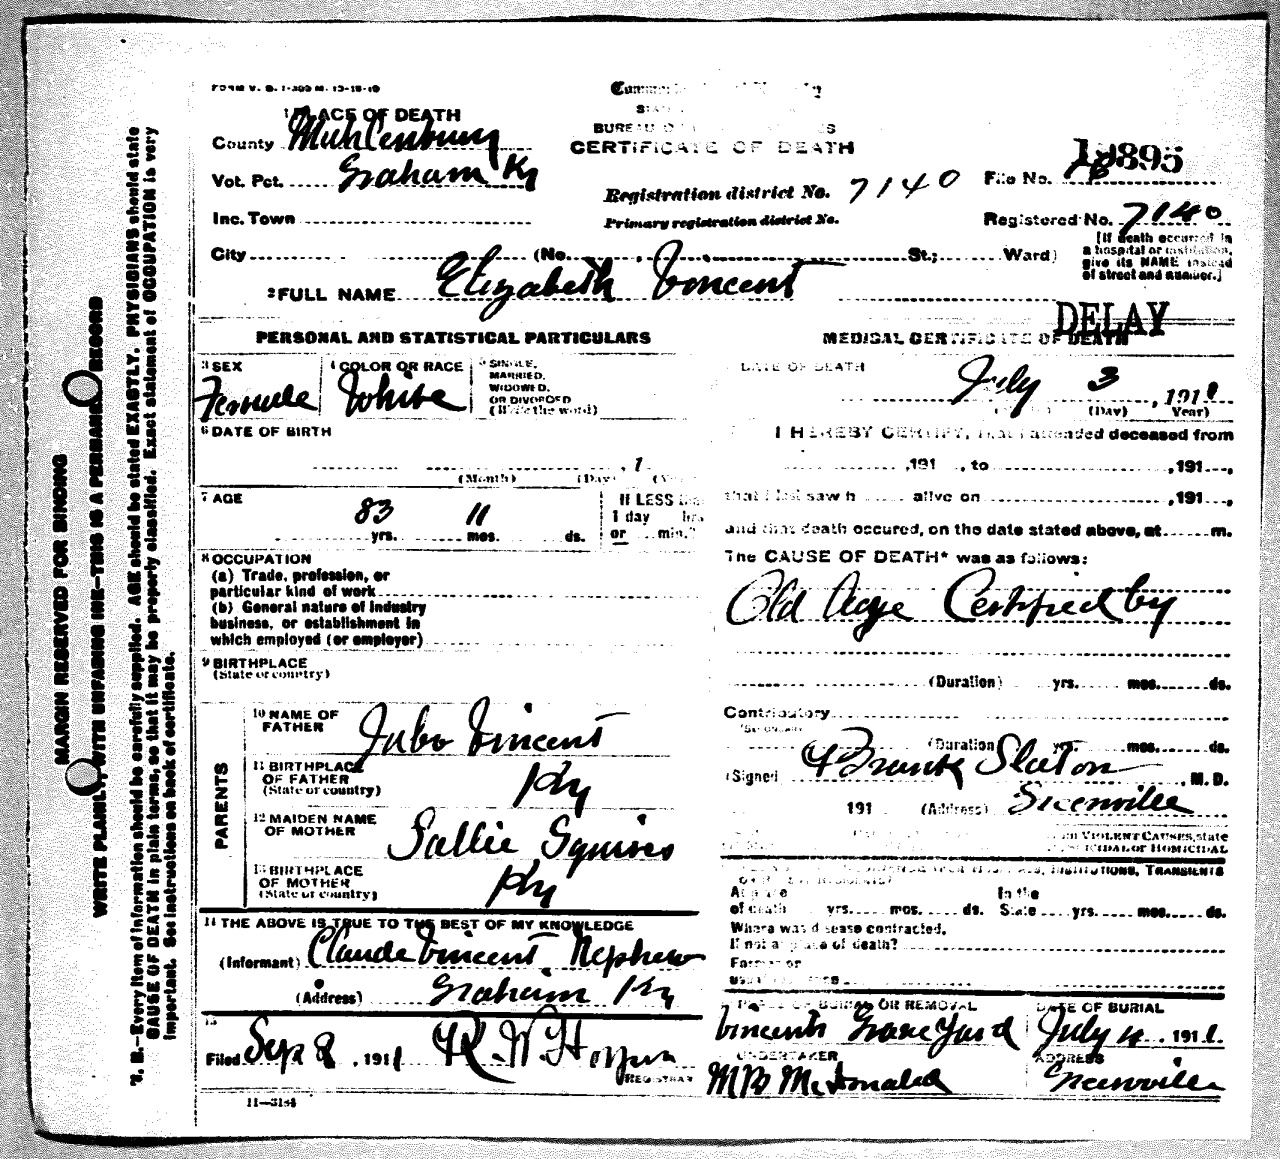 FORM V. S. 1-300 M. 12-18-10
1 PLACE OF DEATH
County Muhlenburg
Vot. Pct. Graham Ky
Inc. Town
City (No. St.; Ward)
BUREAU
CERTIFICATE OF DEATH
Registration district No. 7140
Primary registration district No.
File No. 19895
Registered No. 7140
[If death occurred in a hospital or institution, give its NAME instead of street and number.]
2 FULL NAME Elizabeth Vincent
DELAY
PERSONAL AND STATISTICAL PARTICULARS
3 SEX
Female
4 COLOR OR RACE
White
5 SINGLE, MARRIED, WIDOWED, OR DIVORCED (Write the word)
6 DATE OF BIRTH
, 1
(Month) (Day)
7 AGE
83 yrs. 11 mos. ds.
If LESS
1 day hrs
or min.?
8 OCCUPATION
(a) Trade, profession, or
particular kind of work
(b) General nature of industry
business, or establishment in
which employed (or employer)
9 BIRTHPLACE
(State or country)
PARENTS
10 NAME OF FATHER Vincent
11 BIRTHPLACE OF FATHER (State or country) Ky
12 MAIDEN NAME OF MOTHER Sallie Squires
13 BIRTHPLACE OF MOTHER (State or country) Ky
14 THE ABOVE IS TRUE TO THE BEST OF MY KNOWLEDGE
(Informant) Claude Vincent Nephew
(Address) Graham Ky
15
Filed Sep 8, 1911 R. W.
REGISTRAR
11—3184
MEDICAL CERTIFICATE OF DEATH
DATE OF DEATH
July 3, 1911
(Day) Year)
I HEREBY CERTIFY, That I attended deceased from
, 191 , to , 191 ,
that I last saw h alive on , 191 ,
and that death occured, on the date stated above, at m.
The CAUSE OF DEATH* was as follows:
Old Age Certified by
(Duration) yrs. mos. ds.
Contributory
(Duration) yrs. mos. ds.
(Signed) Frank Slaton, M. D.
191 (Address) Greenville
VIOLENT CAUSES, state
HOMICIDAL
INSTITUTIONS, TRANSIENTS
At place In the
of death yrs. mos. ds. State yrs. mos. ds.
Where was disease contracted,
If not at place of death?
Former or
PLACE OF BURIAL OR REMOVAL
Vincents Grave Yard
DATE OF BURIAL
July 4, 1911.
UNDERTAKER
McDonald
ADDRESS
Greenville
MARGIN RESERVED FOR BINDING
WRITE PLAINLY, WITH UNFADING INK—THIS IS A PERMANENT RECORD
N. B.—Every item of information should be carefully supplied. AGE should be stated EXACTLY. PHYSICIANS should state
CAUSE OF DEATH in plain terms, so that it may be properly classified. Exact statement of OCCUPATION is very
important. See instructions on back of certificate.